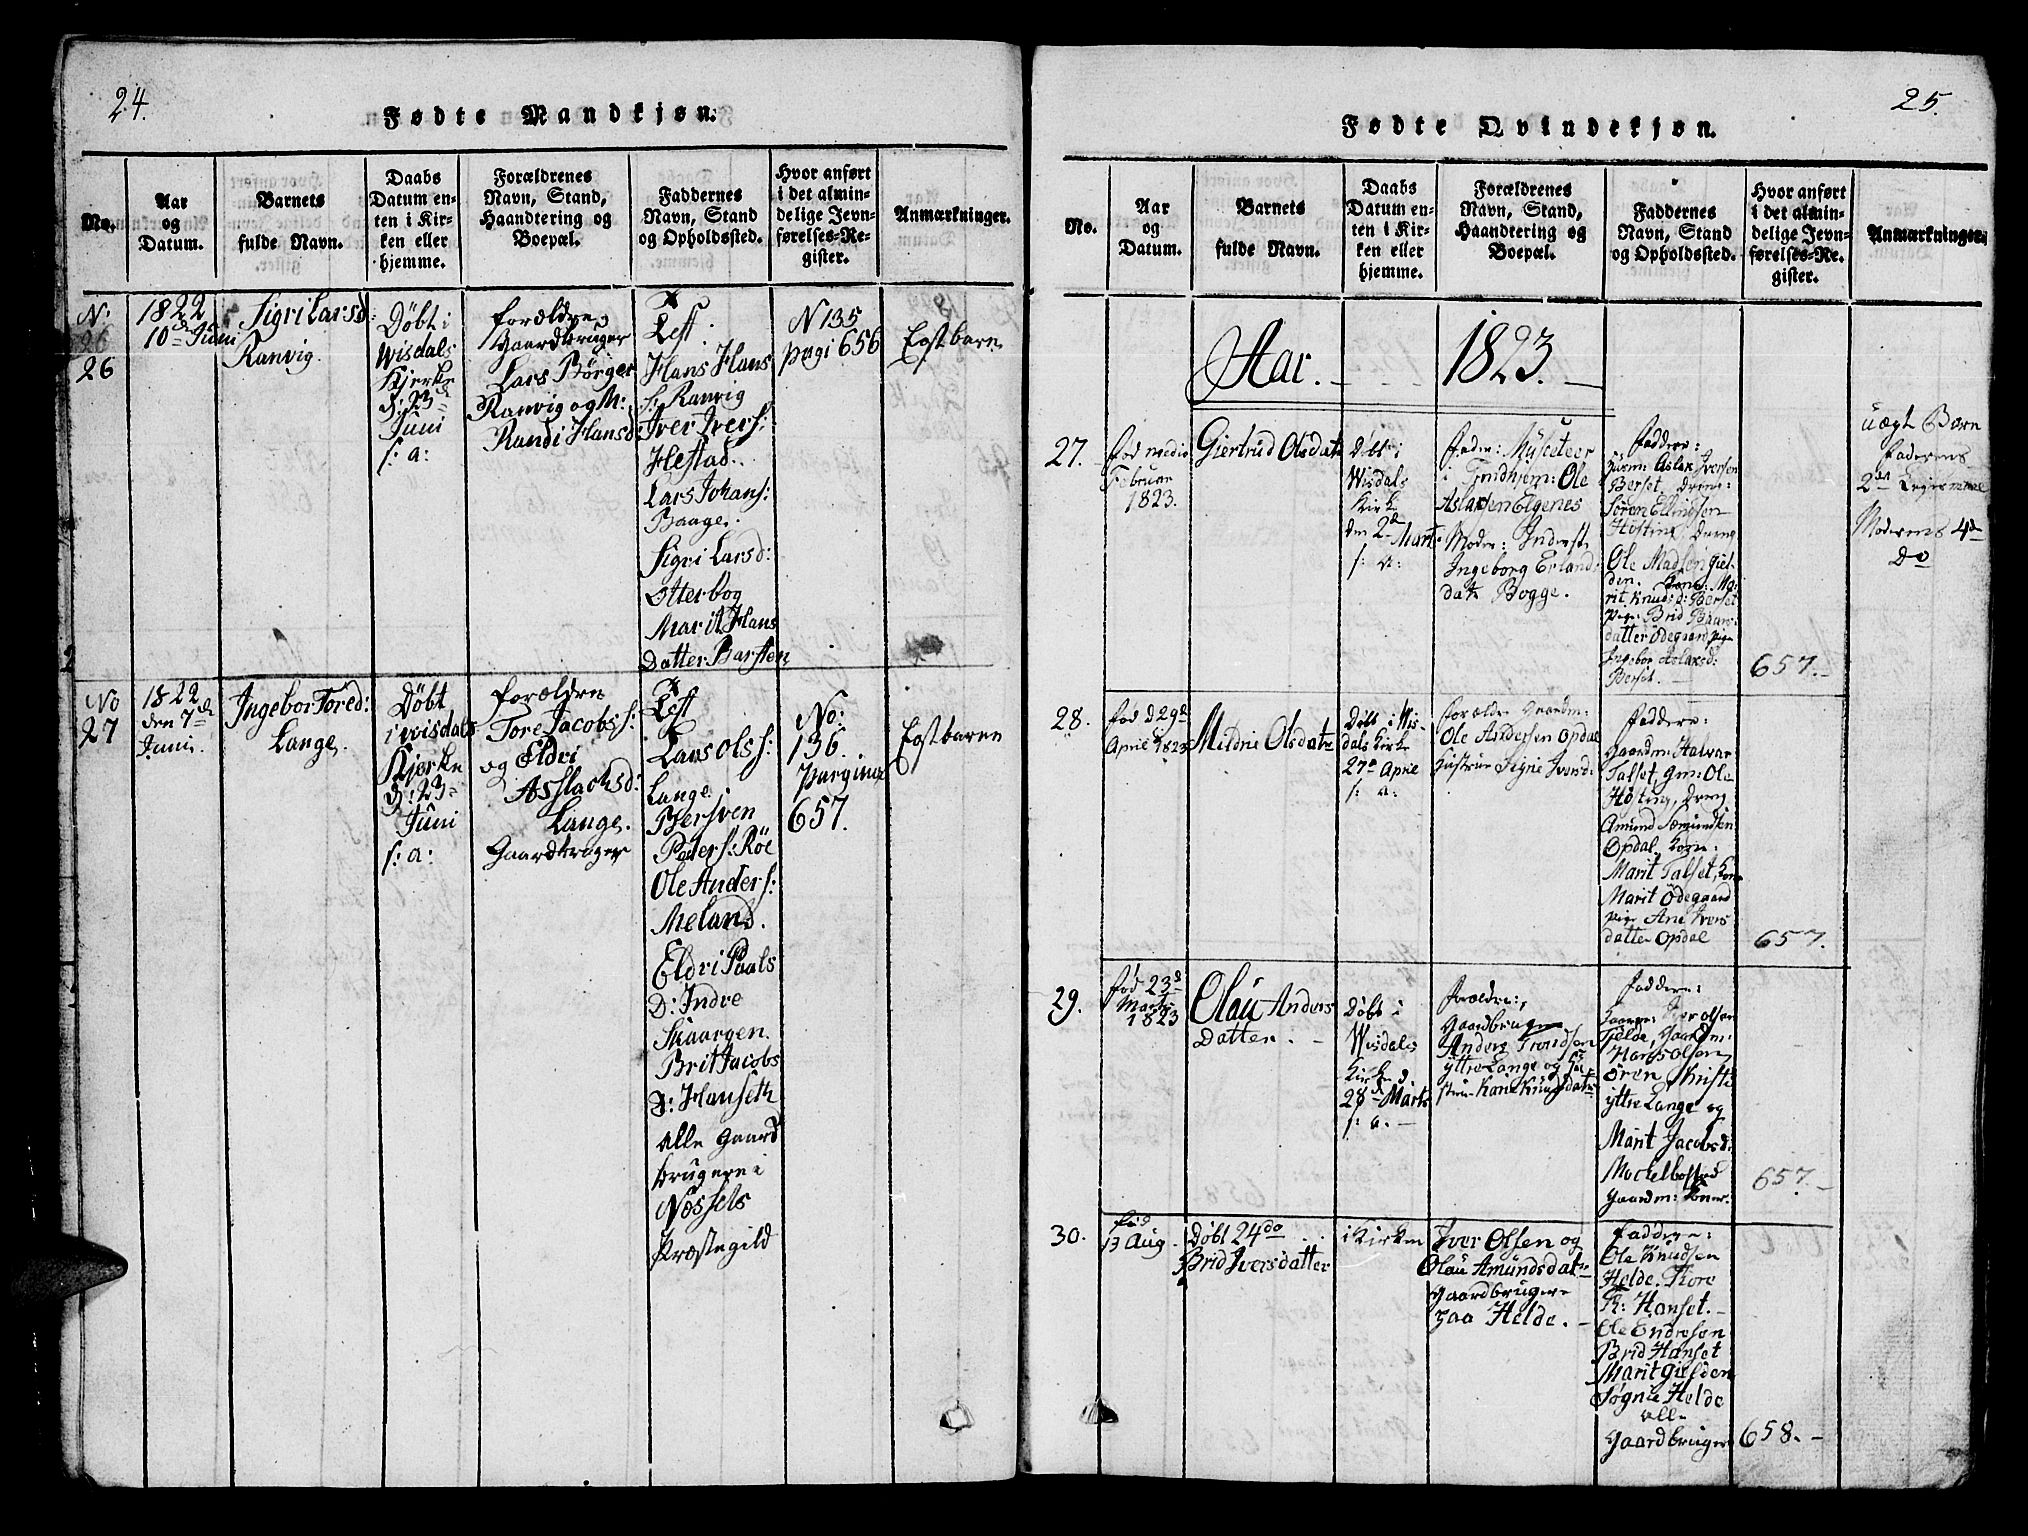 24.
Fødte Mandkjøn.
No.
Aar
og
Datum.
Barnets
fulde Navn.
Daabs
Datum en-
ten i Kir-
ken eller
hjemme.
Forældrenes
Navn, Stand,
Haandtering og
Boepæl.
Faddernes
Navn, Stand
og Opholdssted.
Hvor anført
i det almin-
delige Jevn-
førelses-Re-
gister.
Anmærkninger.
N:
26
26
1822
10 Juni
Sigri Larsd:
Ranvig.
Døbt i
Wisdals
Kjerke
d: 23
Juni
s: a:
forældre
Gaardbruger
Lars Börger
Ranvig og M:
Randi Hansd
Test.
Hans Hans
s: Ranvig
Iver Ivers:
Hestad.
Lars Johans:
Baage.
Sigri Larsd:
Otterbog
Marit Hans
Datter Barsten
N 135
pagi 656
Egtbarn
No
27
1822
den 7de
Juni.
Ingebor Tored:
Lange.
Døbt
i wisdals
Kjerke
d: 23
Juni
s: a:
forældre
Tore Jacobs s:
og Eldri
Asslachsd:
Lange.
Gaardbruger
Test
Lars Ols s:
Lange
Bersven
Peders: Röe
Ole Anders:
Meland.
Eldri Paals
D: Indre
Skaargen.
Brit Jacobs
D: Hanseth
alle Gaard
brugere i
Næssets
Præstegild
No:
136.
pagina
657.
Egtbaren
25.
Fødte Qvindekjøn.
No.
Aar
og
Datum.
Barnets
fulde Navn.
Daabs
Datum en-
ten i Kir-
ken eller
hjemme.
Forældrenes
Navn, Stand,
Haandtering og
Boepæl.
Faddernes
Navn, Stand
og Opholdssted.
Hvor anført
i det almin-
delige Jevn-
førelses-Re-
gister.
Anmærkninger.
Aar. 1823.
27.
fød medio
Februar
1823.
Giertrud Olsdatr
Døbt i
Wisdals
Kirke
den 2d Marts
s: a:
Fader: Mysceteer
i Trndhjem: Ole
Aslaksen Elgenes
Moder: Inderst
Ingeborg Erland
datr Bogge.
Faddere:
Aslak Iversen
Berset, Dreng:
Sören Ellingsen
Hösting Dreng
Ole Madsen Giel-
den. Kone: Ma-
rit Knudsd: Berset
Pige: Brid Baars-
datter Ödegaard pige
Ingebor Aslaksd:
Berset.
657.
uægt Barn
Faderens
2den Leiermaal
Moderens 4de
Do
28.
fød d 29de
April 1823
Mildrie Olsdatr
Døbt i Wis-
dals Kirke
27de April
s: a:
forældre Gaardm:
Ole Andersen Opdal
Hustrue Segnie Iversd:
Faddere:
Gaardm: Halvar
Talset, Gm: Ole
Hösting, Dreng
Amund Sæmundsen
Opdal, Kone:
Marit Talset, Kone
Marit Ödegaard
pige Ane Ivers
datter Opdal
657.
29.
fød 23d
Marts
1823
Olau Anders
Datter.
Døbt i
Wisdals
Kirke d
28d Marts
s: a.
forældre:
Gaardbruger
Anders Trondsen
yttre Lange og Hu-
strue Kari Knudsdatr
Faddere:
Iver Olsen
Tjelde, Gaardm:
Hans Olsen
ören Christe
yttre Lange og
Marit Jacobsd:
Mochelbostad
Gaardm: Koner.
657.
30.
fød
13 Aug.
Døbt 24do
Brid Iversdatter
i Kirken
Iver Olsen og
Olau Amundsdatr
Gaardbrugere
paa Helde.
Faddere:
Ole Knudsen
Helde. Tore
Th: Hanset.
Ole Endresen
Brid Hanset
Marit Gielden
Søgnie Helde
alle
Gaardbruger
658.